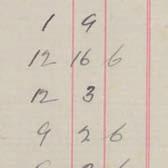 1 9
12 16 6
12 3
9 2 6